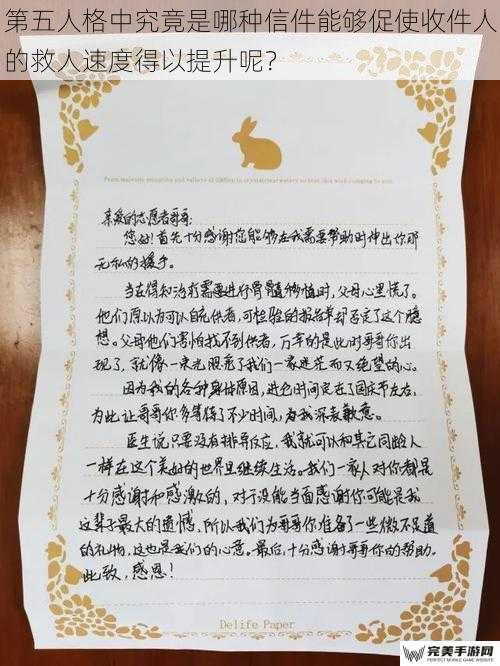 第五人格中究竟是哪种信件能够促使收件人
的救人速度得以提升呢？
亲爱的志愿者哥哥：
您好！首先十分感谢您能够在我需要帮助时伸出你那
无私的援手。
当在得知治疗需要进行骨髓移植时，父母心里慌了。
他们原以为可以自先供者，可检验的报告单却否定了这个想
想。父母他们害怕找不到供者，万幸的是此时哥哥你出
现了，就像一束光照亮了我们一家迷茫而又绝望的心。
因为我的各种身体原因，进仓时间定在了国庆节左右，
为此让哥哥你多等待了不少时间，为我深表歉意。
医生说只要没有排异反应，我就可以和其它同龄人
一样在这个美好的世界里继续生活。我们一家人对你都是
十分感谢和感激的，对于没能当面感谢你可能是我
这辈子最大的遗憾，所以我们为哥哥你准备了一些微不足道
的礼物，这也是我们的心意。最后，十分感谢哥哥你的帮助。
此致，感恩！
Delife Paper
完美手游网